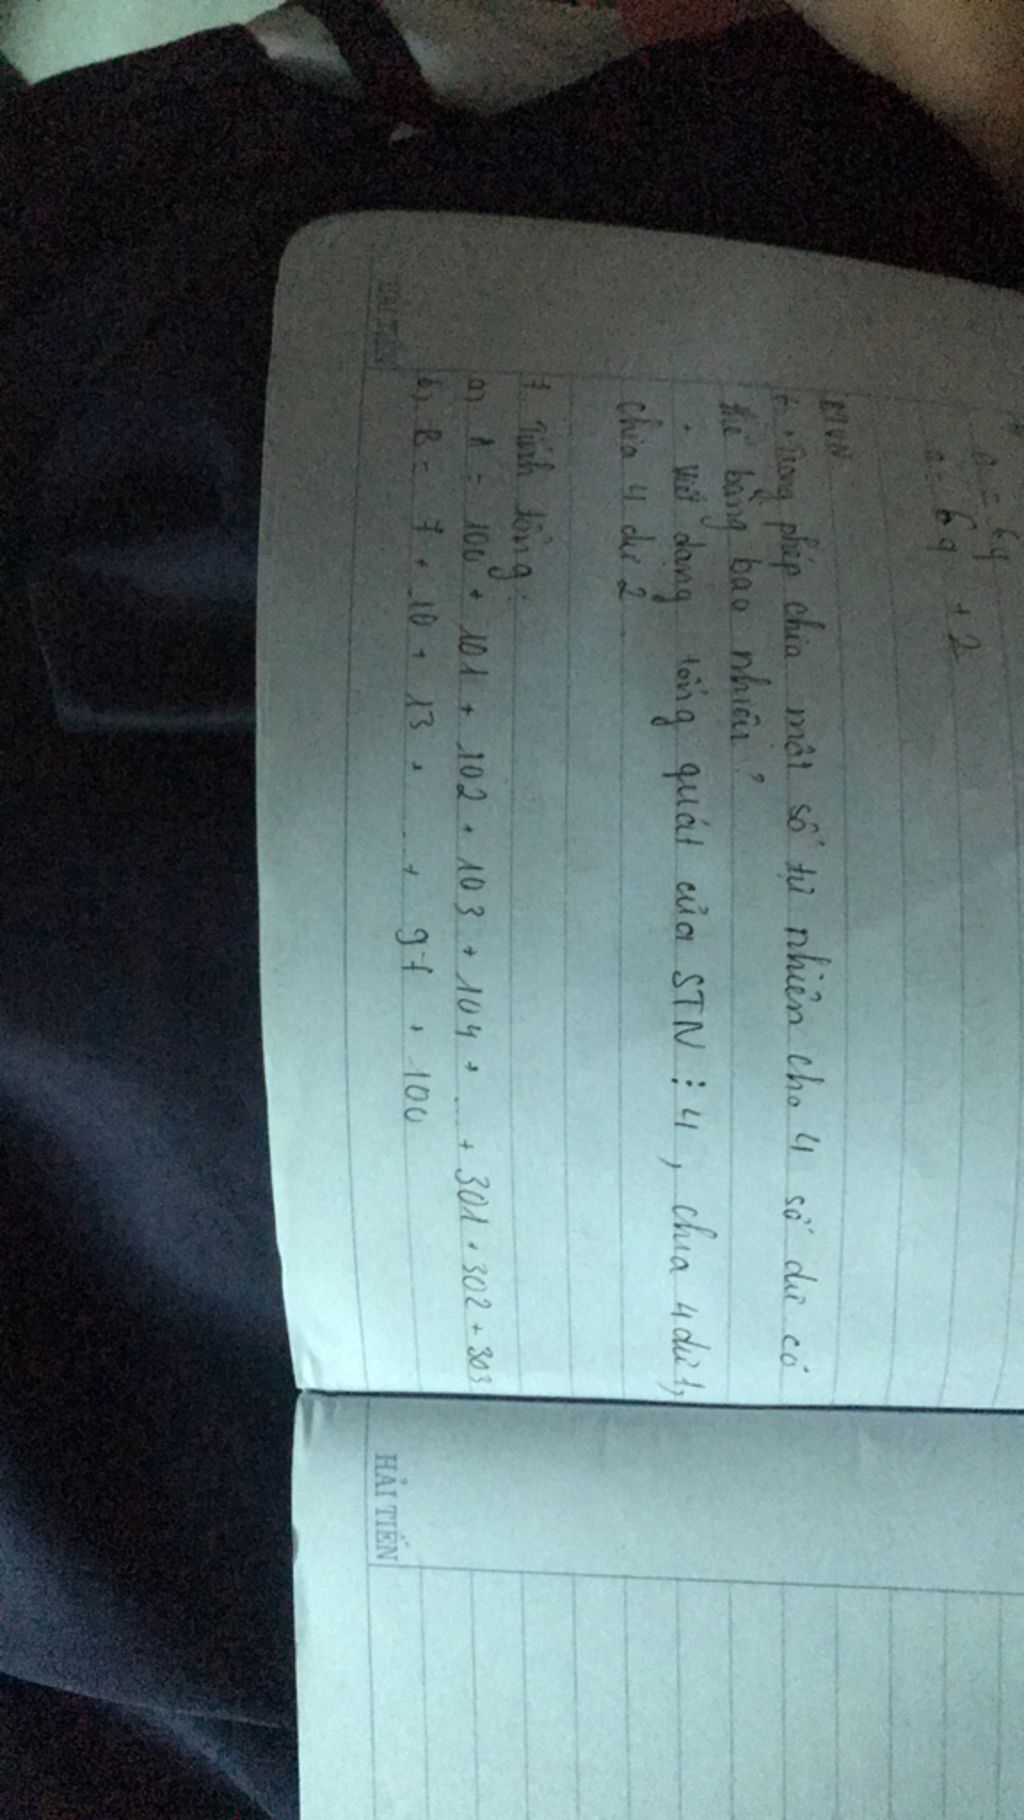 a = 6q
a = 6q + 2
BTVN
6. . Trong phép chia một số tự nhiên cho 4 số dư có
thể bằng bao nhiêu?
. Viết dạng tổng quát của STN ⋮ 4, chia 4 dư 1,
chia 4 dư 2
7. Tính tổng:
a) A = 100 + 101 + 102 + 103 + 104 + ... + 301 + 302 + 303
b) B = 7 + 10 + 13 + ... + 97 + 100
HẢI TIẾN
HẢI TIẾN